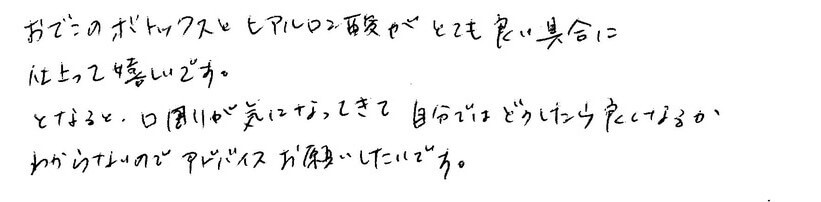 おでこのボトックスとヒアルロン酸がとても良い具合に
仕上って嬉しいです。
となると、口周りが気になってきて自分ではどうしたら良くなるか
わからないのでアドバイスお願いしたいです。